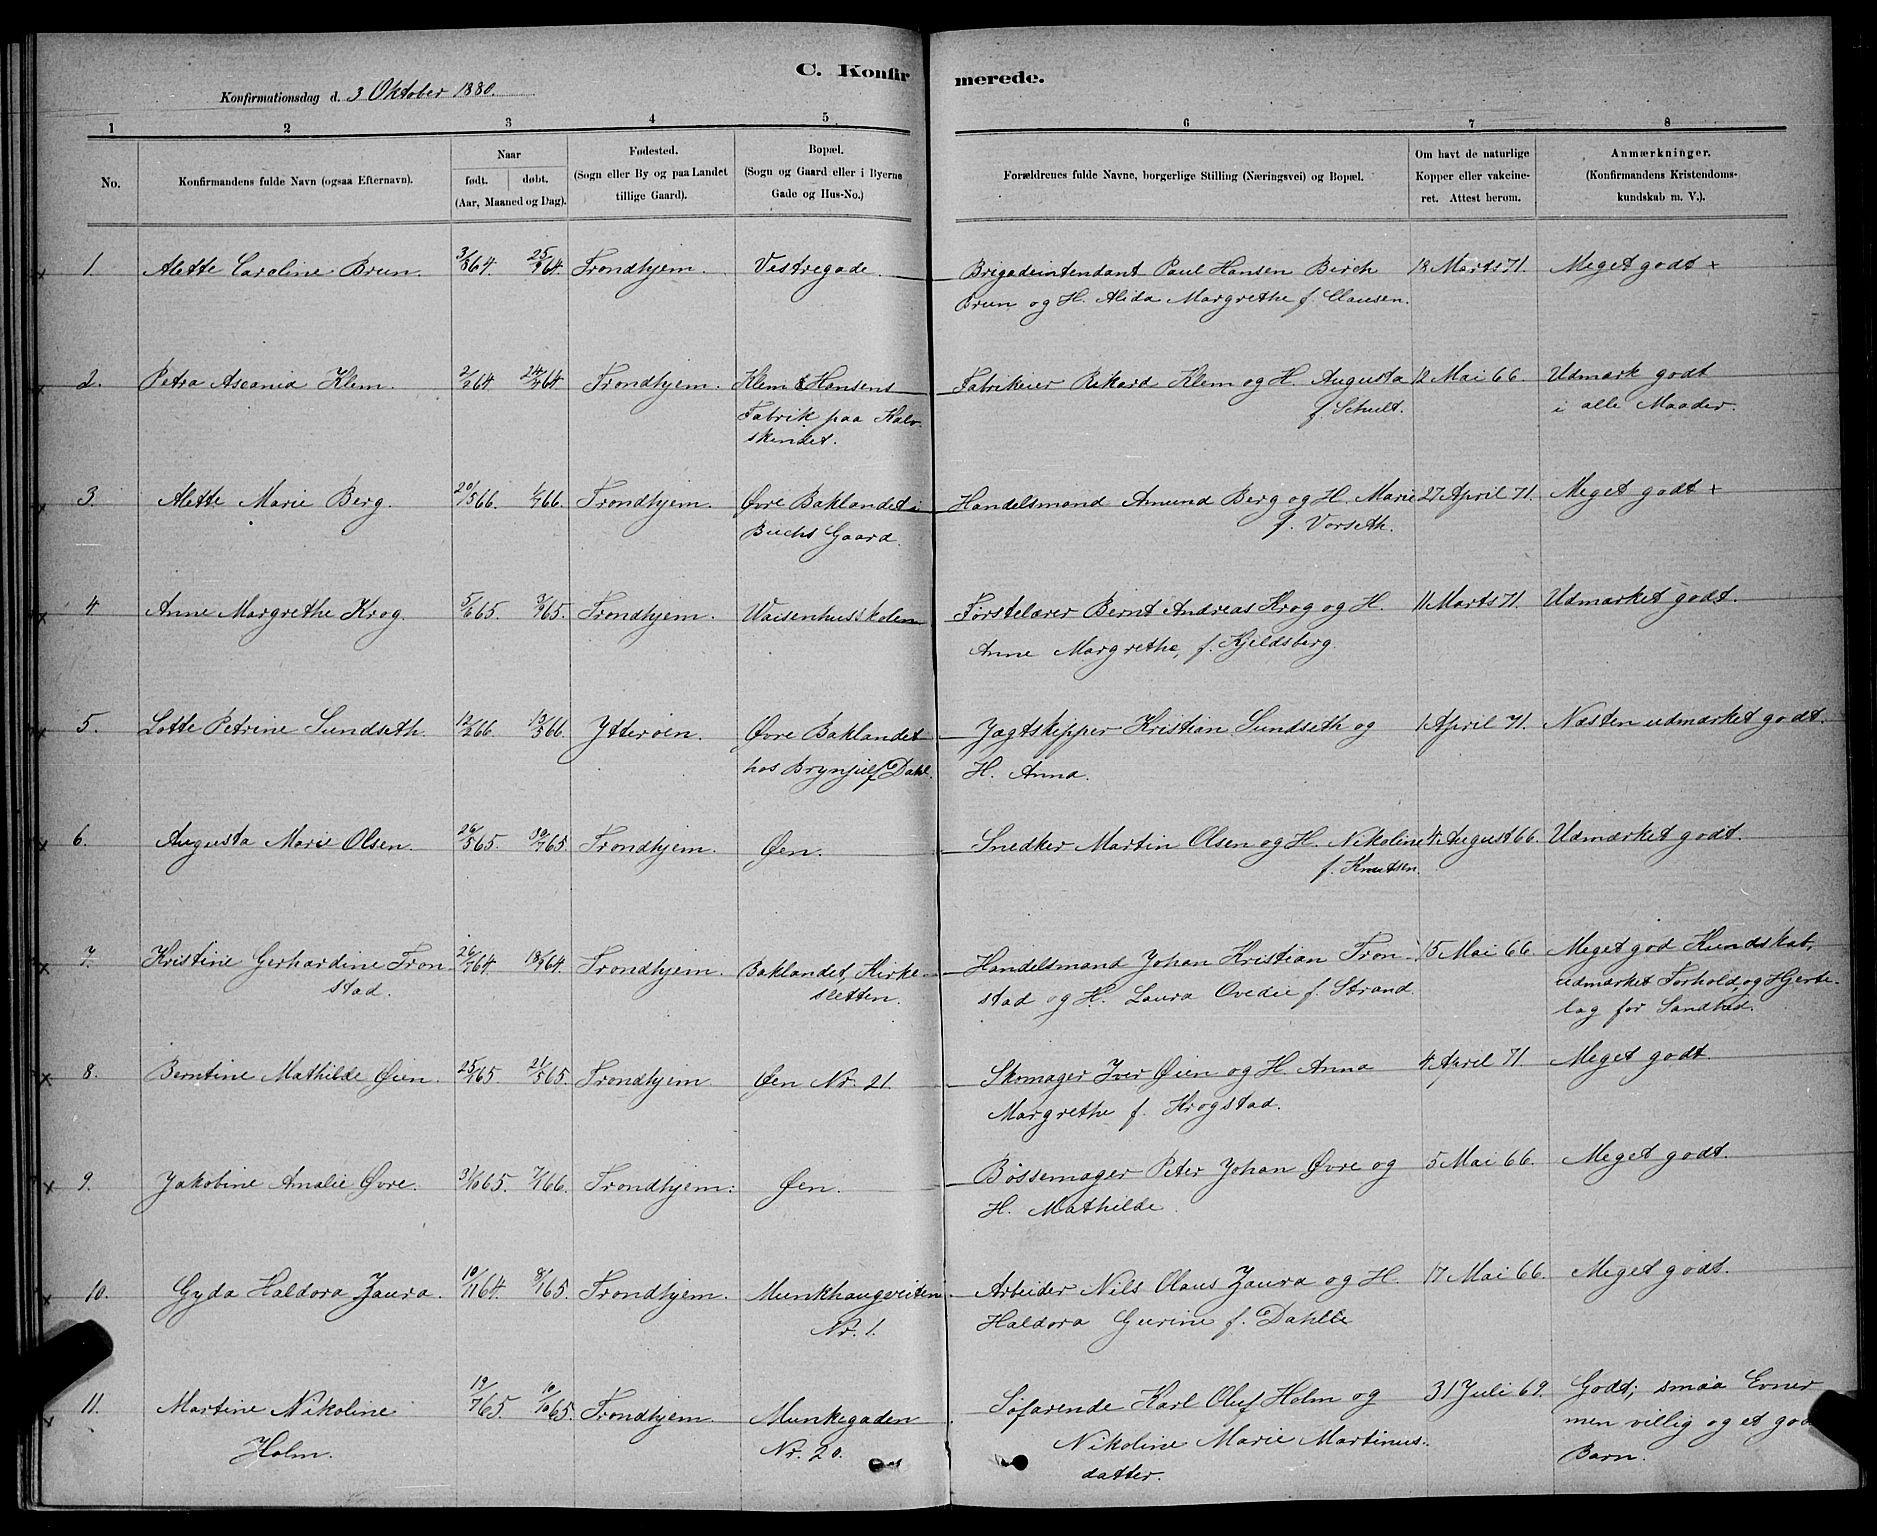 C. Konfirmerede.
Konfirmationsdag d. 3 Oktober 1880.
1 2 3 4 5 6 7 8
No. Konfirmandens fulde Navn (ogsaa Efternavn). Naar født. døbt. (Aar, Maaned og Dag). Fødested. (Sogn eller By og paa Landet tillige Gaard). Bopæl. (Sogn og Gaard eller i Byerne Gade og Hus-No.) Forældrenes fulde Navne, borgerlige Stilling (Næringsvei) og Bopæl. Om havt de naturlige Kopper eller vakcineret. Attest herom. Anmærkninger. (Konfirmandens Kristendomskundskab m. V.).
1. Alette Caroline Brun. 3/864. 25/964. Trondhjem. Vestregade. Brigadeintendant Paul Hansen Birch 18 Marts 71. Meget godt +
Brun og H. Alida Margrethe f. Clausen.
2. Petra Ascania Klem. 2/264. 24/764 Trondhjem. Klem & Hansens Fabrikeier Rikard Klem og H. Augusta 12 Mai 66. Udmærk. godt
Fabrik paa Kalv- f. Schult. i alle Maader.
skindet.
3. Alette Marie Berg. 20/566. 1/766. Trondhjem. Øvre Baklandet i Handelsmand Amund Berg og H. Marie 27 April 71. Meget godt +
Buchs Gaard. f. Vorseth.
4 Anne Margrethe Krog. 5/665. 3/965. Trondhjem. Waisenhusskolen Førstelærer Bernt Andreas Krog og H. 11 Marts 71. Udmærket godt.
Anne Margrethe, f. Kjeldsberg.
5. Lotte Petrine Sundseth. 12/266. 13/566. Ytterøen. Øvre Baklandet Jægtskipper Kristian Sundseth og 1 April 71. Næsten udmærket godt.
hos Brynjulf Dahl. H. Anna.
6. Augusta Marie Olsen. 26/565. 30/765. Trondhjem. Øen. Snedker Martin Olsen og H. Nikoline 4 August 66. Udmærket godt.
f. Knutsen.
7. Kristine Gerhardine Tron 26/764. 18/964. Trondhjem. Baklandet, Kirke- Handelsmand Johan Kristian Tron- 15 Mai 66. Meget god Kundskab,
stad. sletten. stad og H. Laura Ovedie f. Strand. udmærket Forhold, og Hjerte-
lag for Sandhed.
8. Berntine Mathilde Øien. 25/465. 21/565. Trondhjem Øen Nr. 21. Skomager Iver Øien og H. Anna 4 April 71. Meget godt.
Margrethe f. Krogstad.
9. Jakobine Amalie Øvre. 31/1065. 7/166. Trondhjem. Øen. Bøssemager Peter Johan Øvre og 5 Mai 66. Meget godt.
H. Mathilde.
10. Gyda Haldora Zaura. 10/1164. 8/165. Trondhjem. Munkhaugveiten Arbeider Nils Olaus Zaura og H. 17 Mai 66. Meget godt.
Nr. 1. Haldora Gurine f. Dahlle
11. Martine Nikoline 19/765. 10/1065. Trondhjem. Munkegaden Søfarende Karl Oluf Holm og 31 Juli 69. Godt; smaa Evner
Holm. Nr. 20. Nikoline Marie Martinus- men villig og et godt
datter. Barn.